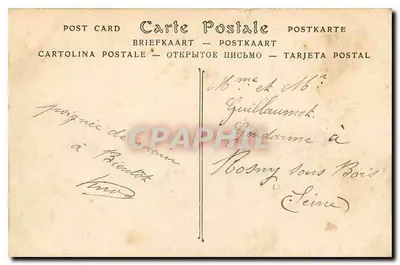 POST CARD Carte Postale POSTKARTE
BRIEFKAART — POSTKAART
CARTOLINA POSTALE — ОТКРЫТОЕ ПИСЬМО — TARJETA POSTAL
poignée de main
à Bientôt
Mme et Mr
Guillaumet
Gendarme à
Rosny sous Bois
(Seine)
CPARAMA